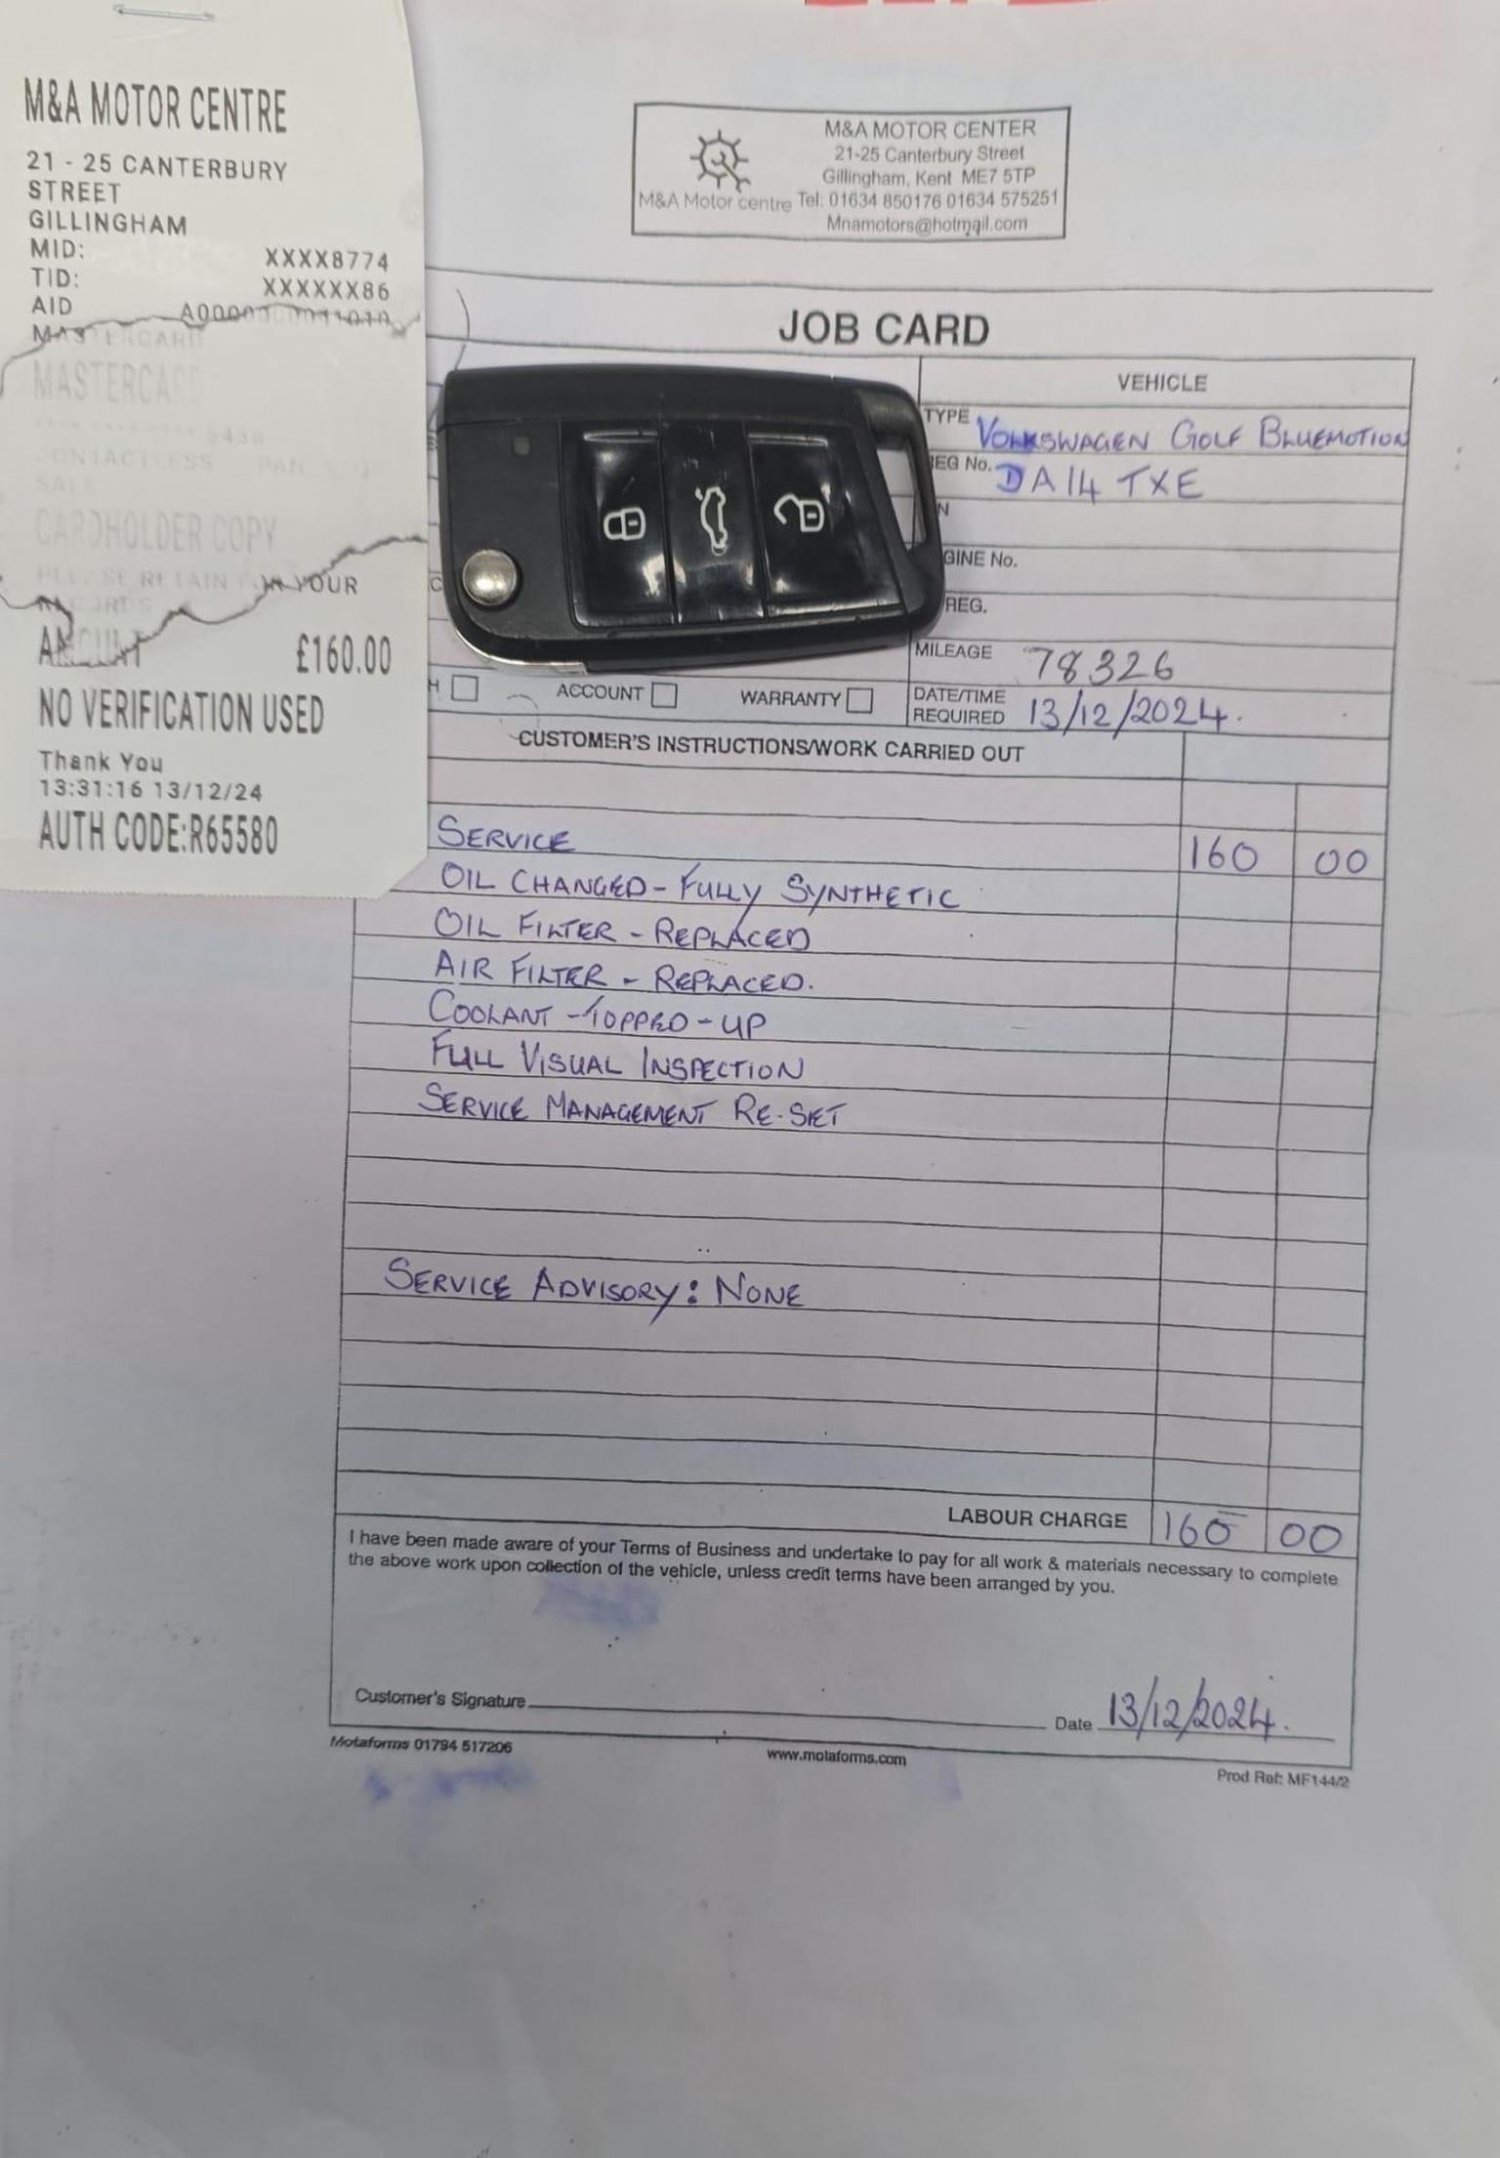 M&A MOTOR CENTRE
21 - 25 CANTERBURY
STREET
GILLINGHAM
MID: XXXX8774
TID: XXXXXX86
AID
MASTERCARD
MASTERCARD
CONTACTLESS PAN
SALE
CARDHOLDER COPY
PLEASE RETAIN FOR YOUR
RECORDS
AMOUNT £160.00
NO VERIFICATION USED
Thank You
13:31:16 13/12/24
AUTH CODE:R65580
M&A MOTOR CENTER
21-25 Canterbury Street
Gillingham, Kent ME7 5TP
M&A Motor centre Tel: 01634 850176 01634 575251
Mnamotors@hotmail.com
JOB CARD
VEHICLE
TYPE VOLKSWAGEN GOLF BLUEMOTION
EG No. DA14 TXE
N
GINE No.
REG.
MILEAGE 78326
H ACCOUNT WARRANTY
DATE/TIME
REQUIRED 13/12/2024.
CUSTOMER'S INSTRUCTIONS/WORK CARRIED OUT
SERVICE 160 00
OIL CHANGED - FULLY SYNTHETIC
OIL FILTER - REPLACED
AIR FILTER - REPLACED.
COOLANT - TOPPED - UP
FULL VISUAL INSPECTION
SERVICE MANAGEMENT RE-SET
SERVICE ADVISORY: NONE
LABOUR CHARGE 160 00
I have been made aware of your Terms of Business and undertake to pay for all work & materials necessary to complete
the above work upon collection of the vehicle, unless credit terms have been arranged by you.
Customer's Signature Date 13/12/2024.
Motaforms 01794 517206 www.motaforms.com Prod Ref: MF144/2